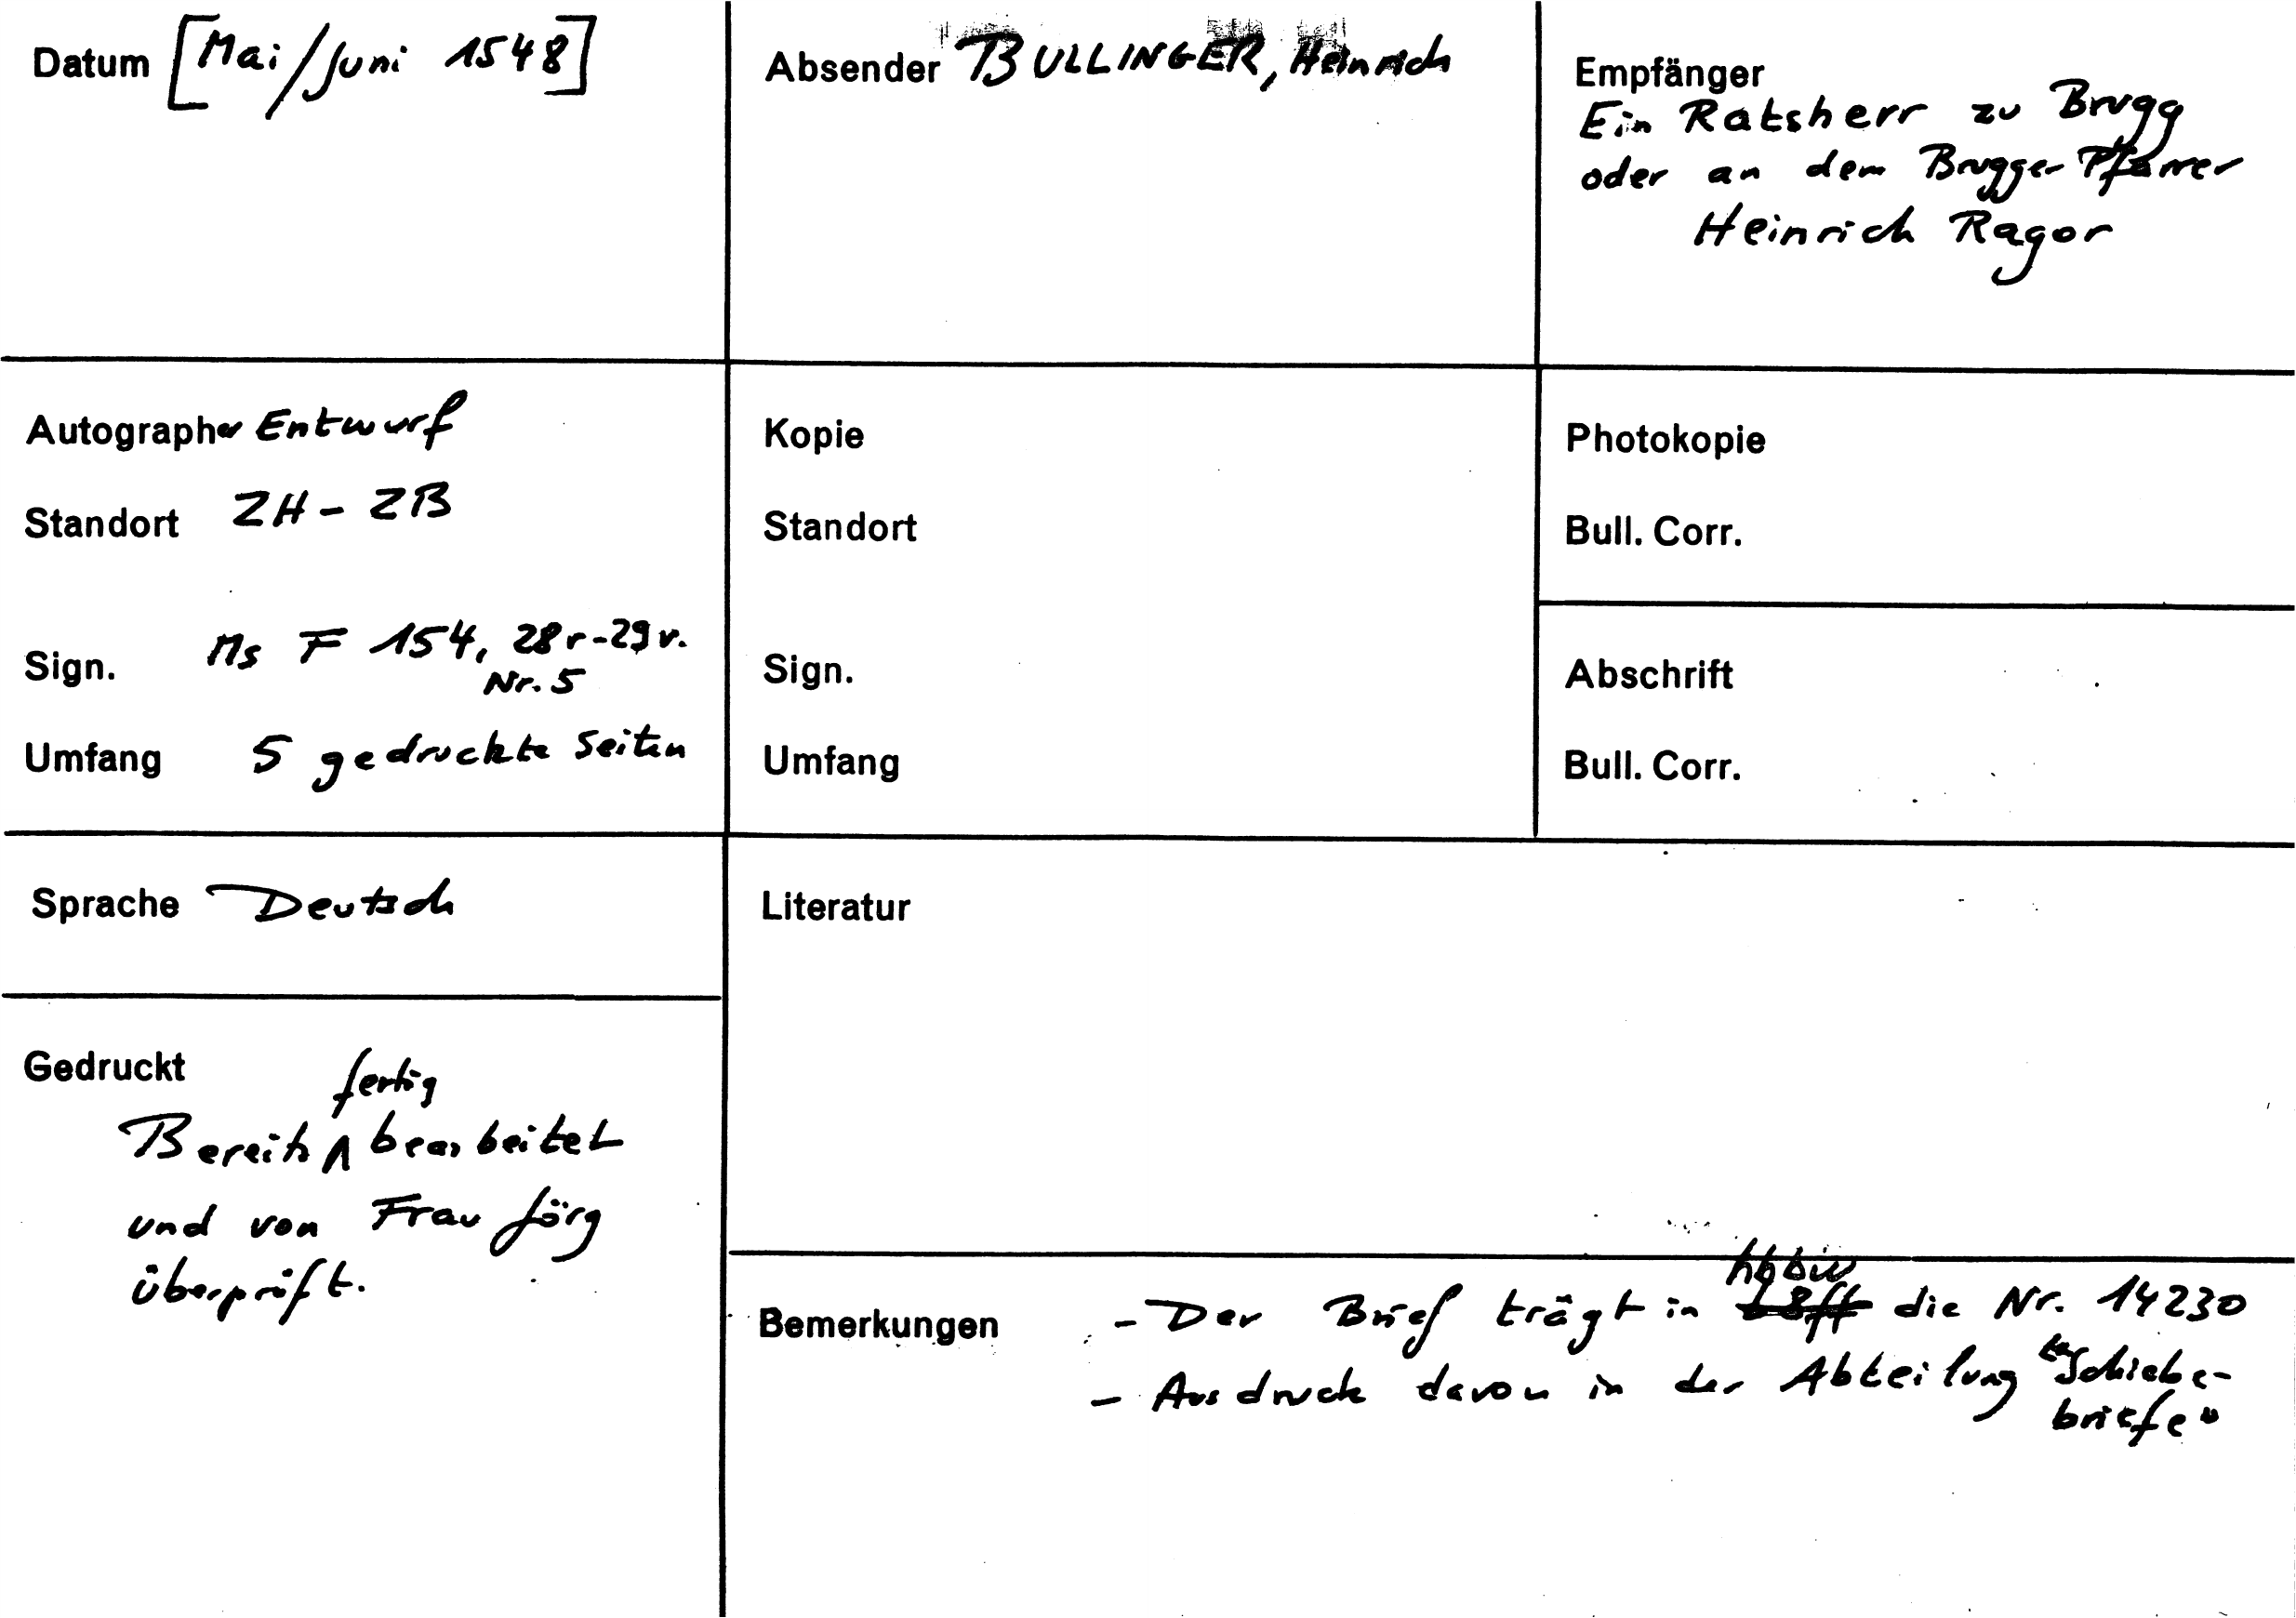 Datum [Mai/Juni 1548]
Absender BULLINGER, Heinrich
Empfänger
Ein Ratsherr zu Brugg
oder an dem Brugger Pfarrer
Heinrich Ragor
Autographer Entwurf
Standort ZH - ZB
Sign. Ms F 154, 28r-29v.
Nr. 5
Umfang 5 gedruckte Seiten
Kopie
Standort
Sign.
Umfang
Photokopie
Bull. Corr.
Abschrift
Bull. Corr.
Sprache Deutsch
Literatur
Gedruckt
fertig
Bereits bearbeitet
und von Frau Jörg
überprüft.
hbbw
Bemerkungen - Der Brief trägt in die Nr. 14230
- Ausdruck davon in der Abteilung "Schiebe-
briefe"